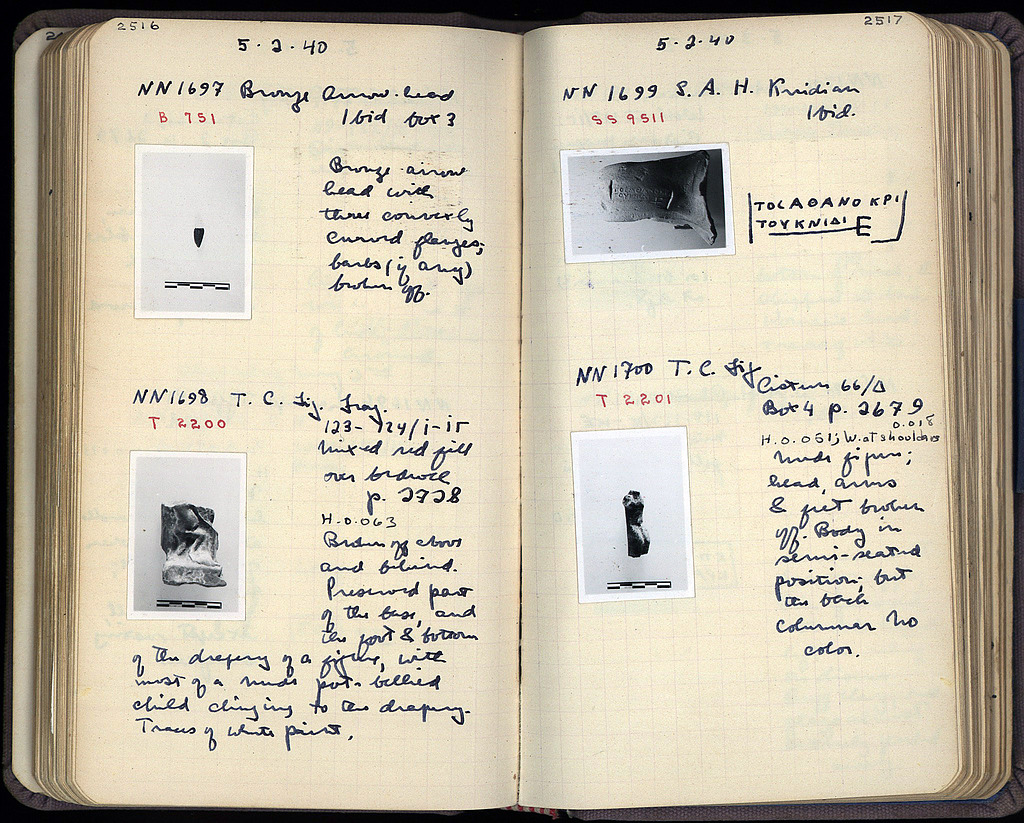 2516
5·2·40
NN1697 Bronze arrow-head
B 751
Ibid box 3
Bronze arrow
head with
three convexly
curved flanges;
barbs (if any)
broken off.
NN1698 T. C. fig. frag.
T 2200
123-124/
mixed red fill
over bedrock
p. 2728
H. 0.063
Broken off above
and behind.
Preserved part
of the base, and
the foot & bottom
of the drapery of a figure, with
most of a nude pot-bellied
child clinging to the drapery.
Traces of white paint.
2517
5·2·40
NN 1699 S. A. H. Knidian
SS 9511
Ibid.
ΤΟΣΑΘΑΝΟΚΡΙ
ΤΟΥΚΝΙΔΙΕ
NN1700 T. C. fig
T 2201
Cistern 66/Δ
Box 4 p. 2679
0.018
H. 0.051; W. at shoulders
Nude figure;
head, arms
& feet broken
off. Body in
semi-seated
position, but
the back
columnar No
color.